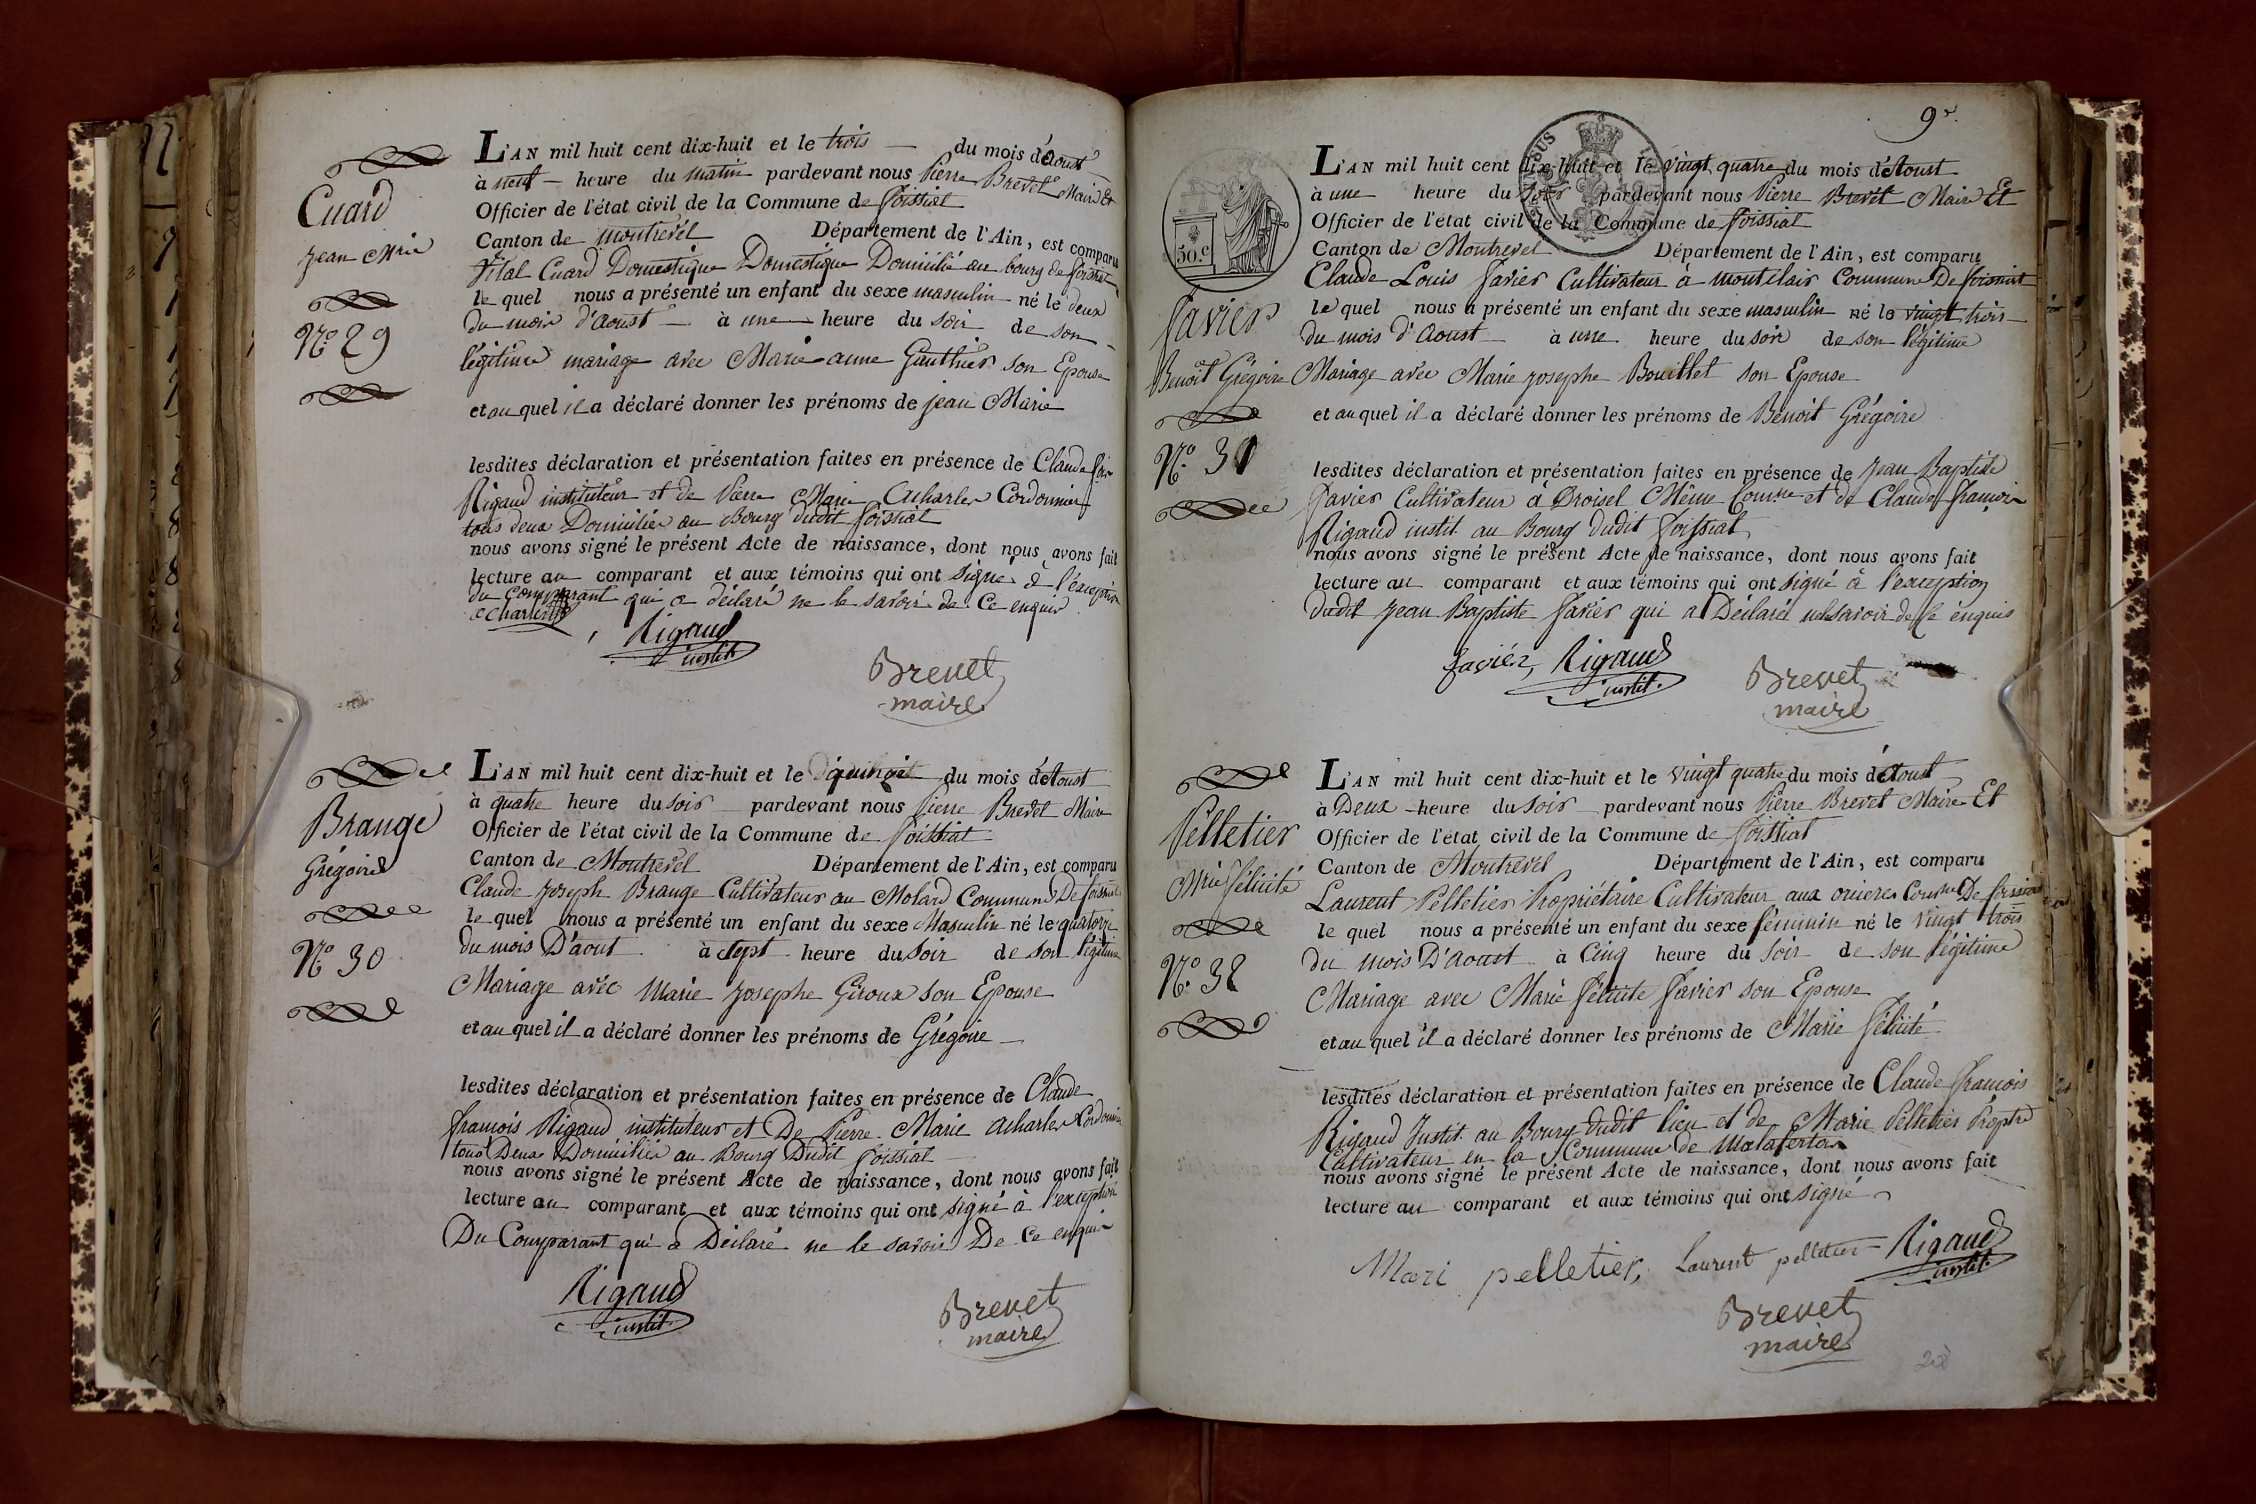 Cuard
Jean Mrie
N.º 29
L'AN mil huit cent dix-huit et le trois du mois d'Aoust
à neuf heure du matin pardevant nous Pierre Brevet Maire Et
Officier de l'état civil de la Commune de foissiat
Canton de montrevél Département de l'Ain, est comparu
Vital Cuard Domestique Domestique Domicilié au bourg de foissiat
le quel nous a présenté un enfant du sexe masculin né le deux
du mois d'Aoust à une heure du soir de son
légitime mariage avec Marie anne Gauthier son Epouse
et au quel il a déclaré donner les prénoms de jean Marie
lesdites déclaration et présentation faites en présence de Claude fois
Rigaud instituteur et de Pierre Marie Acharles Cordonnier
tous deux Domiciliés au Bourg dudit foissiat
nous avons signé le présent Acte de naissance, dont nous avons fait
lecture au comparant et aux témoins qui ont signé à l'éxception
du comparant qui a déclaré ne le savoir de ce enquis
Rigaud
instit.
Brevet
maire
Brange
Grégoire
N.º 30
L'AN mil huit cent dix-huit et le quinze du mois d'Aoust
à quatre heure du soir pardevant nous Pierre Brevet Maire
Officier de l'état civil de la Commune de foissiat
Canton de Montrevel Département de l'Ain, est comparu
Claude joseph Brange Cultivateur au Molard Commune De foissiat
le quel nous a présenté un enfant du sexe Masculin né le quatorze
du mois D'aout à sept heure du soir de son légitime
Mariage avec Marie josephe Giroux son Epouse
et au quel il a déclaré donner les prénoms de Grégoire
lesdites déclaration et présentation faites en présence de Claude
françois Rigaud instituteur et De Pierre Marie Acharles Cordonnier
tous Deux Domiciliés au Bourg Dudit foissiat
nous avons signé le présent Acte de naissance, dont nous avons fait
lecture au comparant et aux témoins qui ont signé à l'exception
Du Comparant qui a Déclaré ne le savoir De ce enquis
Rigaud
instit.
Brevet
maire
9e
50.c
favier
Benoit Grégoire
N.º 31
L'AN mil huit cent dix-huit et le vingt quatre du mois d'Aoust
à une heure du soir pardevant nous Pierre Brevet Maire Et
Officier de l'état civil de la Commune de foissiat
Canton de Montrevel Département de l'Ain, est comparu
Claude Louis favier Cultivateur à montclair Commune De foissiat
le quel nous a présenté un enfant du sexe masculin né le vingt trois
du mois d'Aoust à une heure du soir de son légitime
Mariage avec Marie josephe Bouillet son Epouse
et au quel il a déclaré donner les prénoms de Benoit Grégoire
lesdites déclaration et présentation faites en présence de jean Baptiste
favier Cultivateur à Droisel Même Comune et de Claude françois
Rigaud instit. au Bourg dudit foissiat
nous avons signé le présent Acte de naissance, dont nous avons fait
lecture au comparant et aux témoins qui ont signé à l'exception
dudit jean Baptiste favier qui a Déclaré ne le savoir de Ce enquis
favier, Rigaud
instit.
Brevet
maire
Pelletier
Mrie félicité
N.º 32
L'AN mil huit cent dix-huit et le vingt quatre du mois d'Aoust
à Deux heure du soir pardevant nous Pierre Brevet Maire Et
Officier de l'état civil de la Commune de foissiat
Canton de Montrevel Département de l'Ain, est comparu
Laurent Pelletier Propriétaire Cultivateur aux Comne De foissiat
le quel nous a présenté un enfant du sexe féminin né le vingt trois
du mois D'Aoust à Cinq heure du soir de son légitime
Mariage avec Marie félicité favier son Epouse
et au quel il a déclaré donner les prénoms de Marie félicité
lesdites déclaration et présentation faites en présence de Claude françois
Rigaud Instit. au Bourg dudit lieu et de Marie Pelletier Proptre
Cultivateur en la Commune de Malafertas
nous avons signé le présent Acte de naissance, dont nous avons fait
lecture au comparant et aux témoins qui ont signé
Mari pelletier, Laurent pelletier Rigaud
instit.
Brevet
maire